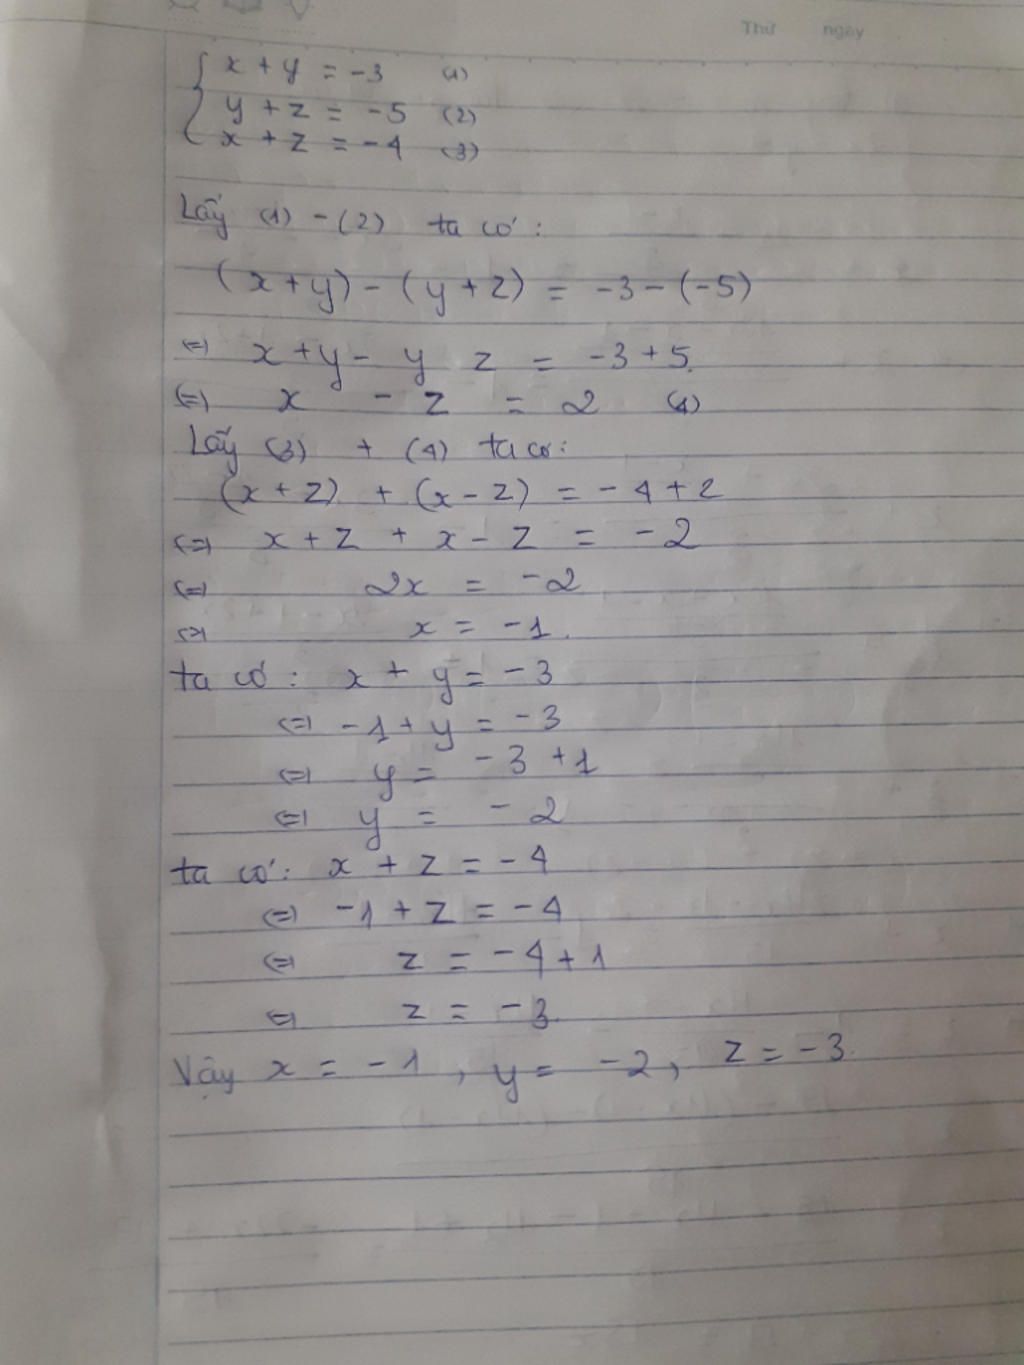 Thứ ngày
x + y = -3 (1)
y + z = -5 (2)
x + z = -4 (3)
Lấy (1) - (2) ta có:
(x + y) - (y + z) = -3 - (-5)
⇔ x + y - y z = -3 + 5.
⇔ x - z = 2 (4)
Lấy (3) + (4) ta có:
(x + z) + (x - z) = -4 + 2
⇔ x + z + x - z = -2
⇔ 2x = -2
⇔ x = -1.
ta có: x + y = -3
⇔ -1 + y = -3
⇔ y = -3 + 1
⇔ y = -2
ta có: x + z = -4
⇔ -1 + z = -4
⇔ z = -4 + 1
⇔ z = -3.
Vậy x = -1, y = -2, z = -3.